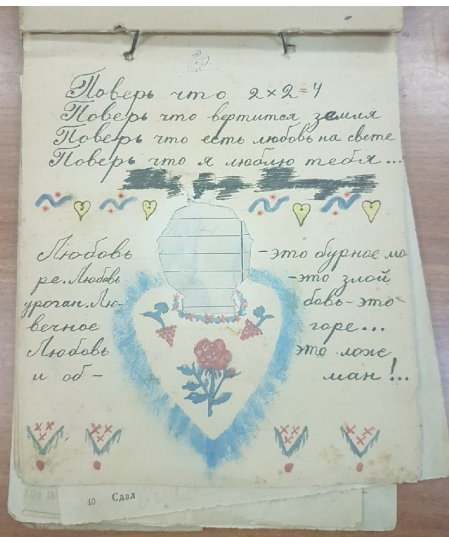 Поверь что 2×2=4
Поверь что вертится земля
Поверь что есть любовь на свете
Поверь что я люблю тебя...
Любовь - это бурное мо
ре. Любовь - это злой
ураган. Лю- бовь - это
вечное горе...
Любовь это лож
и об- ман!..
40 Сдал